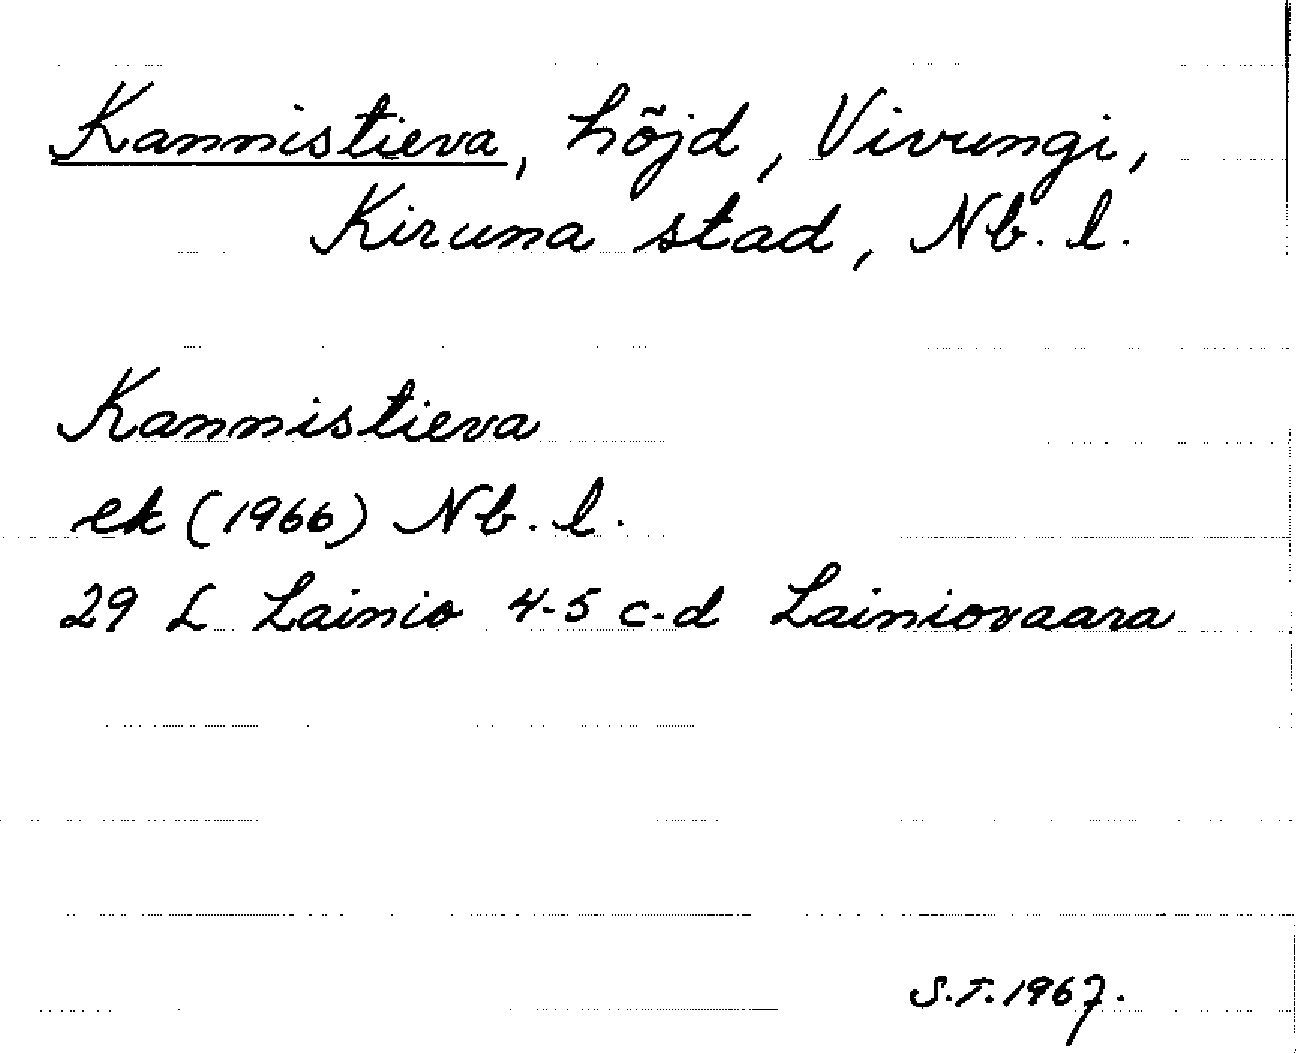 Kannistieva, höjd, Vivungi,
Kiruna stad, Nb. l.
Kannistieva
ek (1966) Nb. l.
29 L Lainio 4-5 c-d Lainiovaara
S.T. 1967.